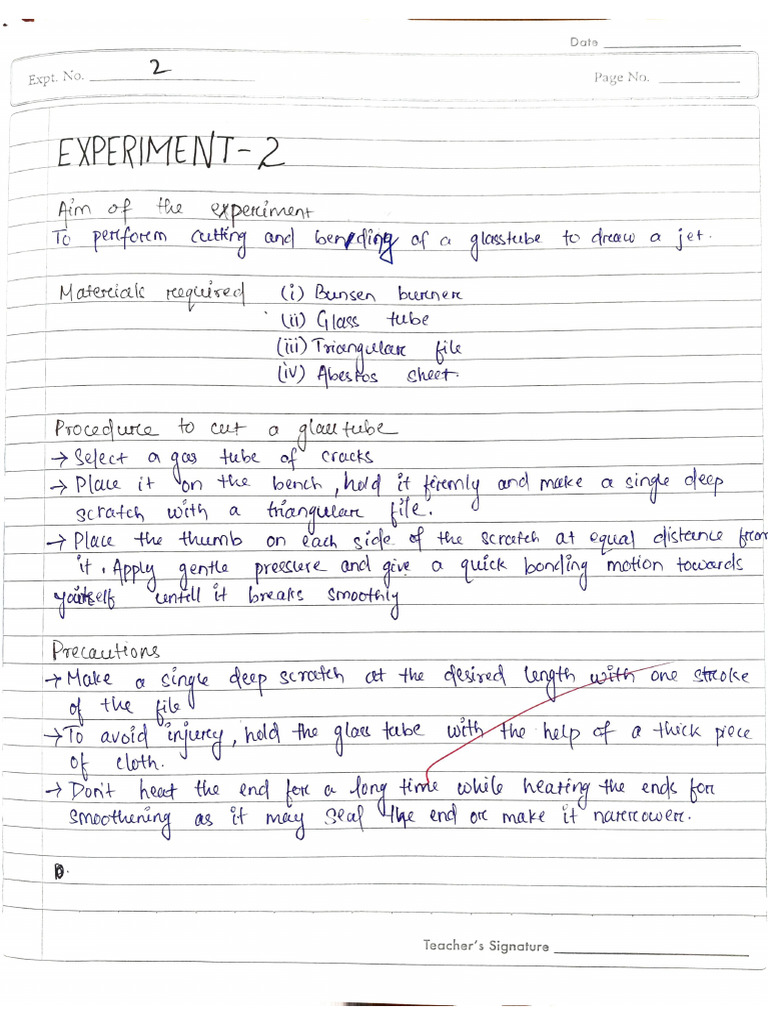 Date
Expt. No. 2
Page No.
EXPERIMENT-2
Aim of the experiment
To perform cutting and bending of a glasstube to draw a jet.
Materials required (i) Bunsen burner
(ii) Glass tube
(iii) Triangular file
(iv) Abestos sheet.
Procedure to cut a glass tube
→ Select a gas tube of cracks
→ Place it on the bench, hold it firmly and make a single deep
scratch with a triangular file.
→ Place the thumb on each side of the scratch at equal distance from
it. Apply gentle pressure and give a quick bonding motion towards
untill it breaks smoothly
Precautions
→ Make a single deep scratch at the desired length with one stroke
of the file
→ To avoid injury, hold the glass tube with the help of a thick piece
of cloth.
→ Don't heat the end for a long time while heating the ends for
smoothening as it may seal the end or make it narrower.
Teacher's Signature